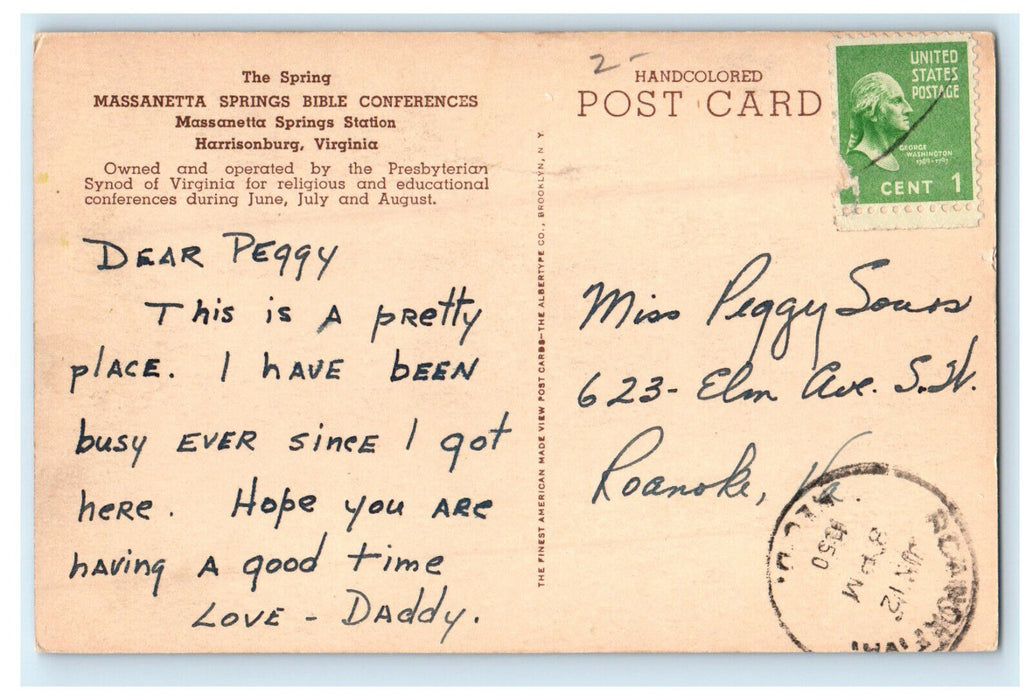 The Spring
MASSANETTA SPRINGS BIBLE CONFERENCES
Massanetta Springs Station
Harrisonburg, Virginia
Owned and operated by the Presbyterian
Synod of Virginia for religious and educational
conferences during June, July and August.
DEAR PEggy
This is A pREtty
plACE. I hAVE bEEN
busy EVER sincE I got
hERE. HopE you ARE
hAving A good time
LOVE - DADDy.
THE FINEST AMERICAN MADE VIEW POST CARDS—THE ALBERTYPE CO., BROOKLYN, N. Y.
2-
HANDCOLORED
POST CARD
UNITED
STATES
POSTAGE
GEORGE
WASHINGTON
1789-1797
1 CENT 1
Miss Peggy
623- Elm Ave. S.W.
Roanoke, Va.
JUN 12
8 PM
1950